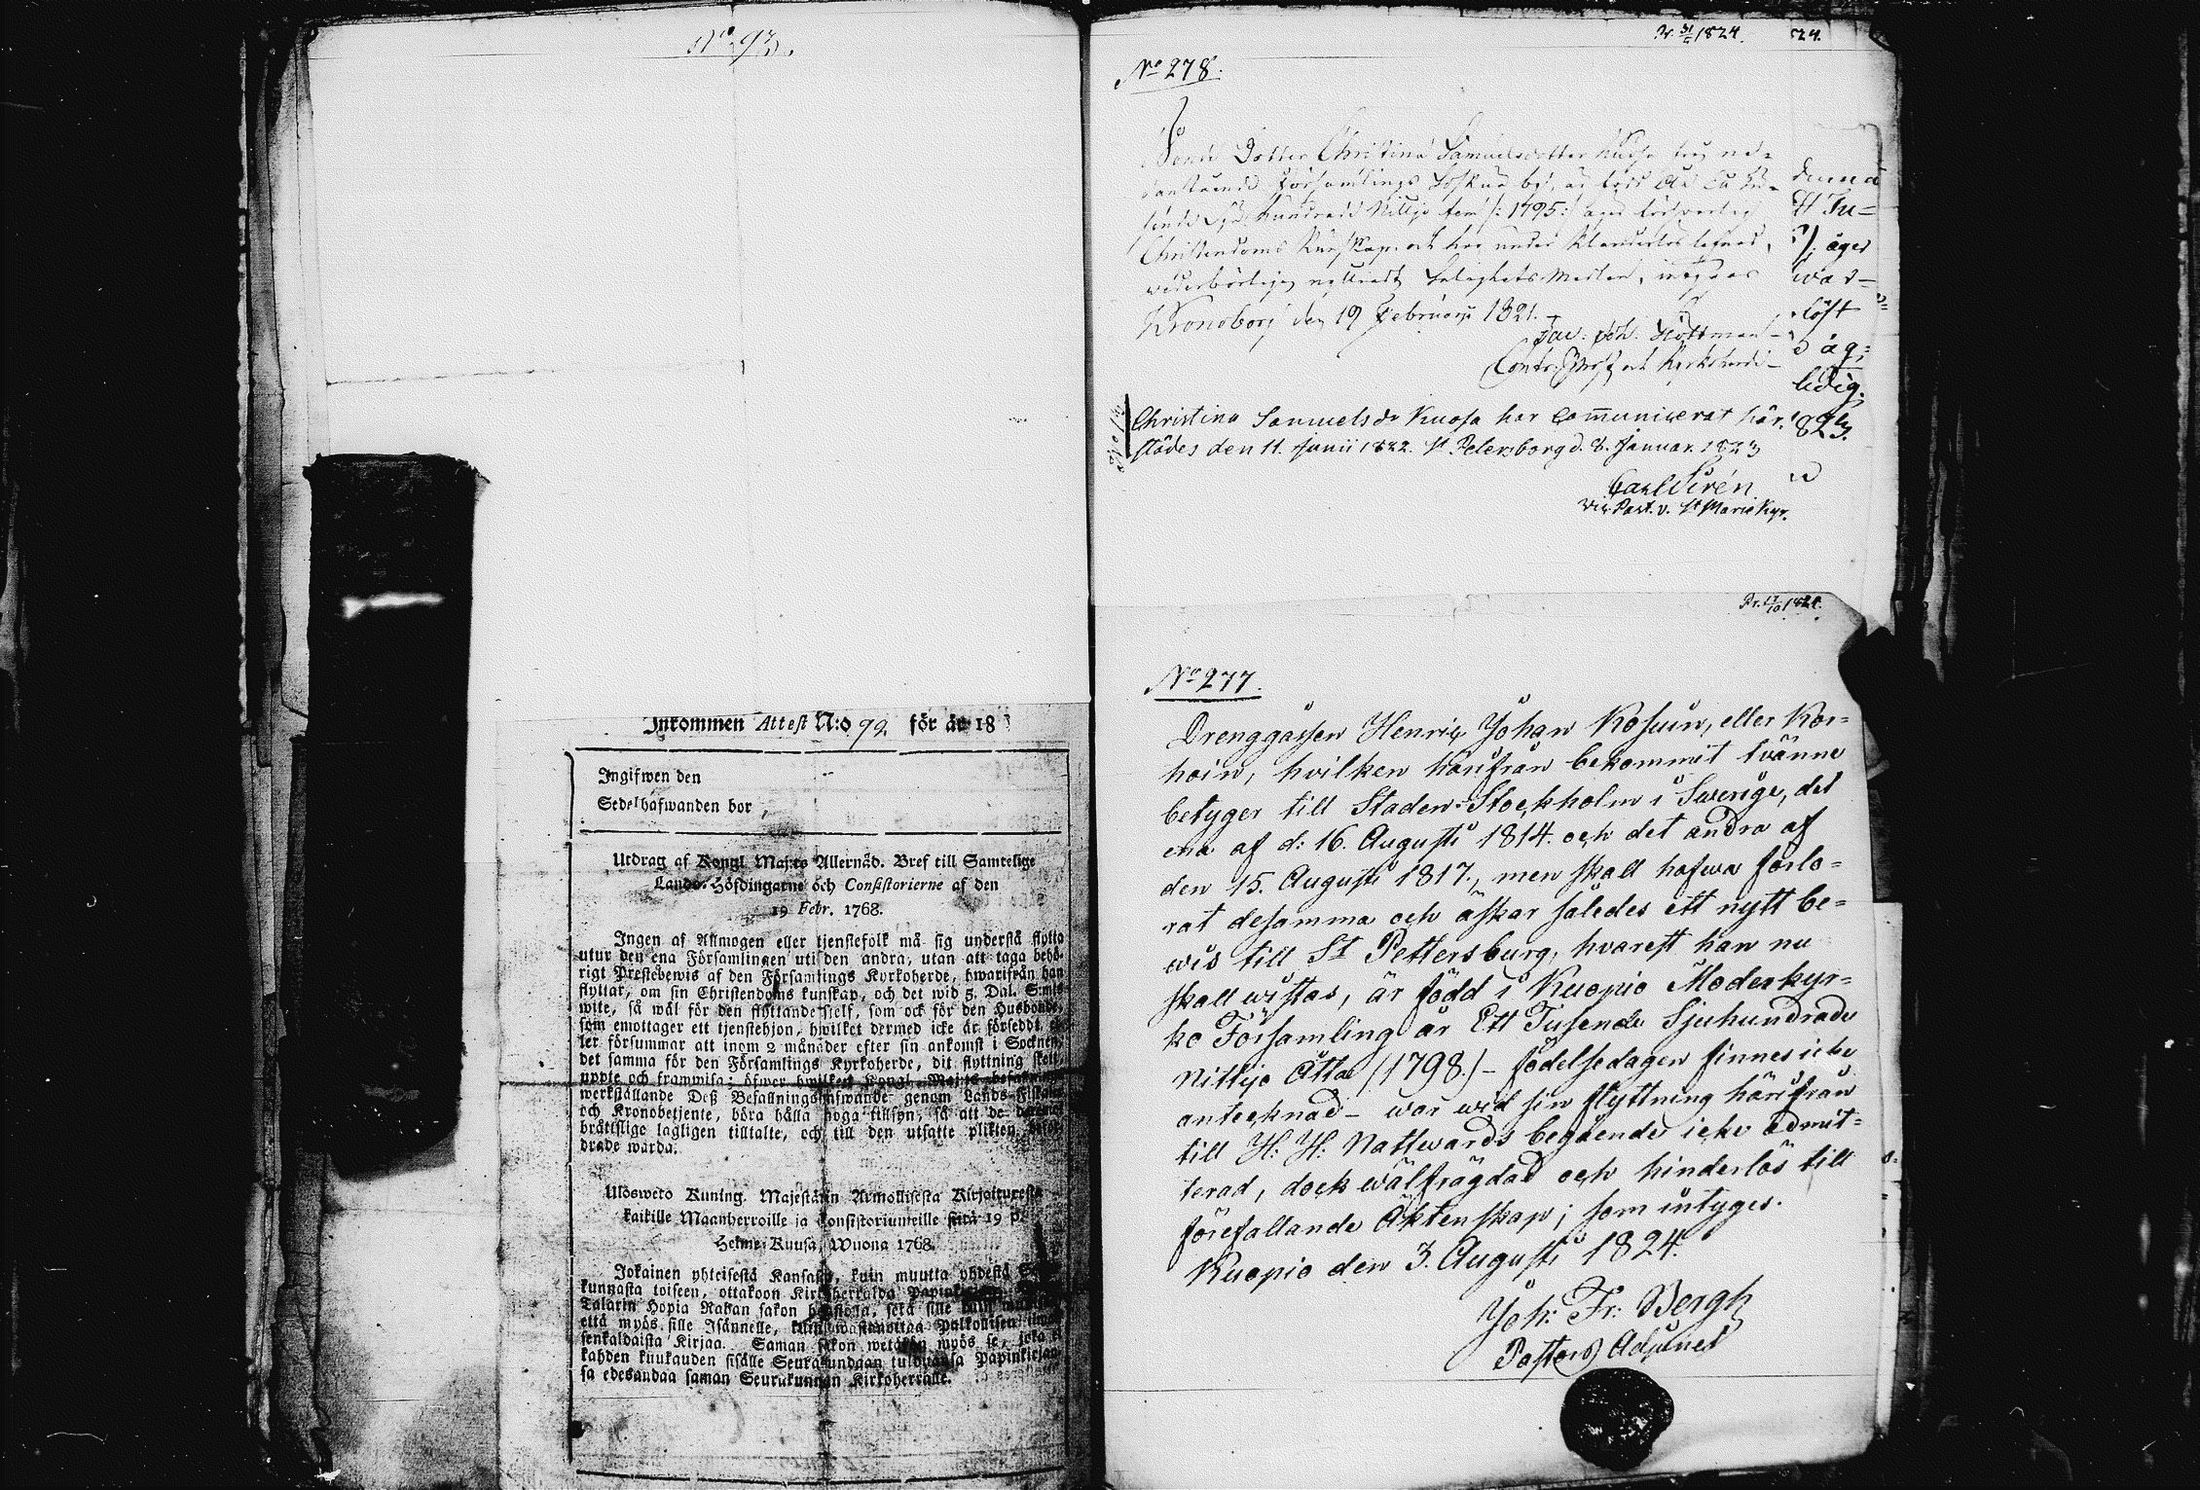 No 93.
Inkommen Attest N:o 99. för år 18
Ingifwen den
Sedelhafwanden bor
Utdrag af Kongl. Maj:ts Allernåd. Bref till Samtelige
Lands-Höfdingarne och Consistorierne af den
19 Febr. 1768.
Ingen af Allmogen eller tjenstefolk må sig understå flytta
utur den ena Församlingen uti den andra, utan att taga behö-
rigt Prestebewis af den Församlings Kyrkoherde, hwarifrån han
flyttar, om sin Christendoms kunskap, och det wid 5. Dal. S:mts
wite, så wäl för den flyttande sielf, som ock för den Husbonde,
som emottager ett tjenstehjon, hwilket dermed icke är försedt, el-
ler försummar att inom 2 månader efter sin ankomst i Socknen,
det samma för den Församlings Kyrkoherde, dit flyttning skett,
uppte och framwisa; öfwer hwilket Kongl. Maj:ts
werkställande Deß Befallningshafwande genom Lands-Fiskaler
och Kronobetjente, böra hålla noga tillsyn, så att de
brättslige lagligen tilltalte, och till den utsatte plikten
drade warda.
Ulosweto Kuning. Majestätin Armollisesta Kirjoituxesta
kaikille Maanherroille ja Konsistoriumeille siitä 19 p.
Helme-Kuusa, Wuona 1768.
Jokainen yhteisestä Kansasta, kuin muutta yhdestä
kunnasta toiseen, ottakoon Kirkkoherralda
Talarin Hopia Rahan sakon haastolla, sekä sille kuin
että myös sille Isännelle, kuin wastanottaa Palkollisen ilman
senkaldaista Kirjaa. Saman sakon wetäkön myös se, joka ei
kahden kuukauden sisälle Seurakundaan tulduansa Papinkirjaan-
sa edesandaa saman Seurakunnan Kirkoherralle.
Pr. 31/5 1824.
24.
No 278.
Bonde Dotter Christina Samuelsdotter Kuosa från ne-
danstående Församlings by, är född År Ett Tu-
sende Sju hundrade Nittijo fem /: 1795:/ äger försvarlig
Christendoms Kunskap, och har under Klanderlös lefnad,
wederbörligen nyttjadt Salighets Medlen, intygas
Kronoborg den 19 Februarii 1821.
Jac. Joh.
Contr. Prost och Kyrkoherde
tt Tu-
äger
war-
löst
äg-
ledig.
1823.
Christina Samuels dr Kuosa har communicerat här-
städes den 11. Junii 1822. St Petersborg d. 8. Januar. 1823
Carl Sirén
vic. Past. v. St Mariæ Kyr.
Pr. 17/10 1824.
No 277.
Drenggåssen Henric Johan Kosuin, eller Kor-
hoin, hvilken härifrån bekommit tvänne
betyger till Staden Stockholm i Swerige, det
ena af d: 16. Augusti 1814. och det andra af
den 15. Augusti 1817., men skall hafwa förlo-
rat desamma och äskar således ett nytt be-
wis till St Pettersburg, hvarest han nu
skall wistas, är född i Kuopio Moderkyr-
ko Församling år Ett Tusende Sjuhundrade
Nittijo Åtta /1798./ - födelsedagen finnes icke
antecknad - war wid sin flyttning härifrån
till H: H: Nattwards begående icke admit-
terad, dock wälfrägdad och hinderlös till
förefallande Äktenskap; som intyges.
Kuopio den 3. Augusti 1824.
Joh: Fr: Bergh
Pastors Adjunct